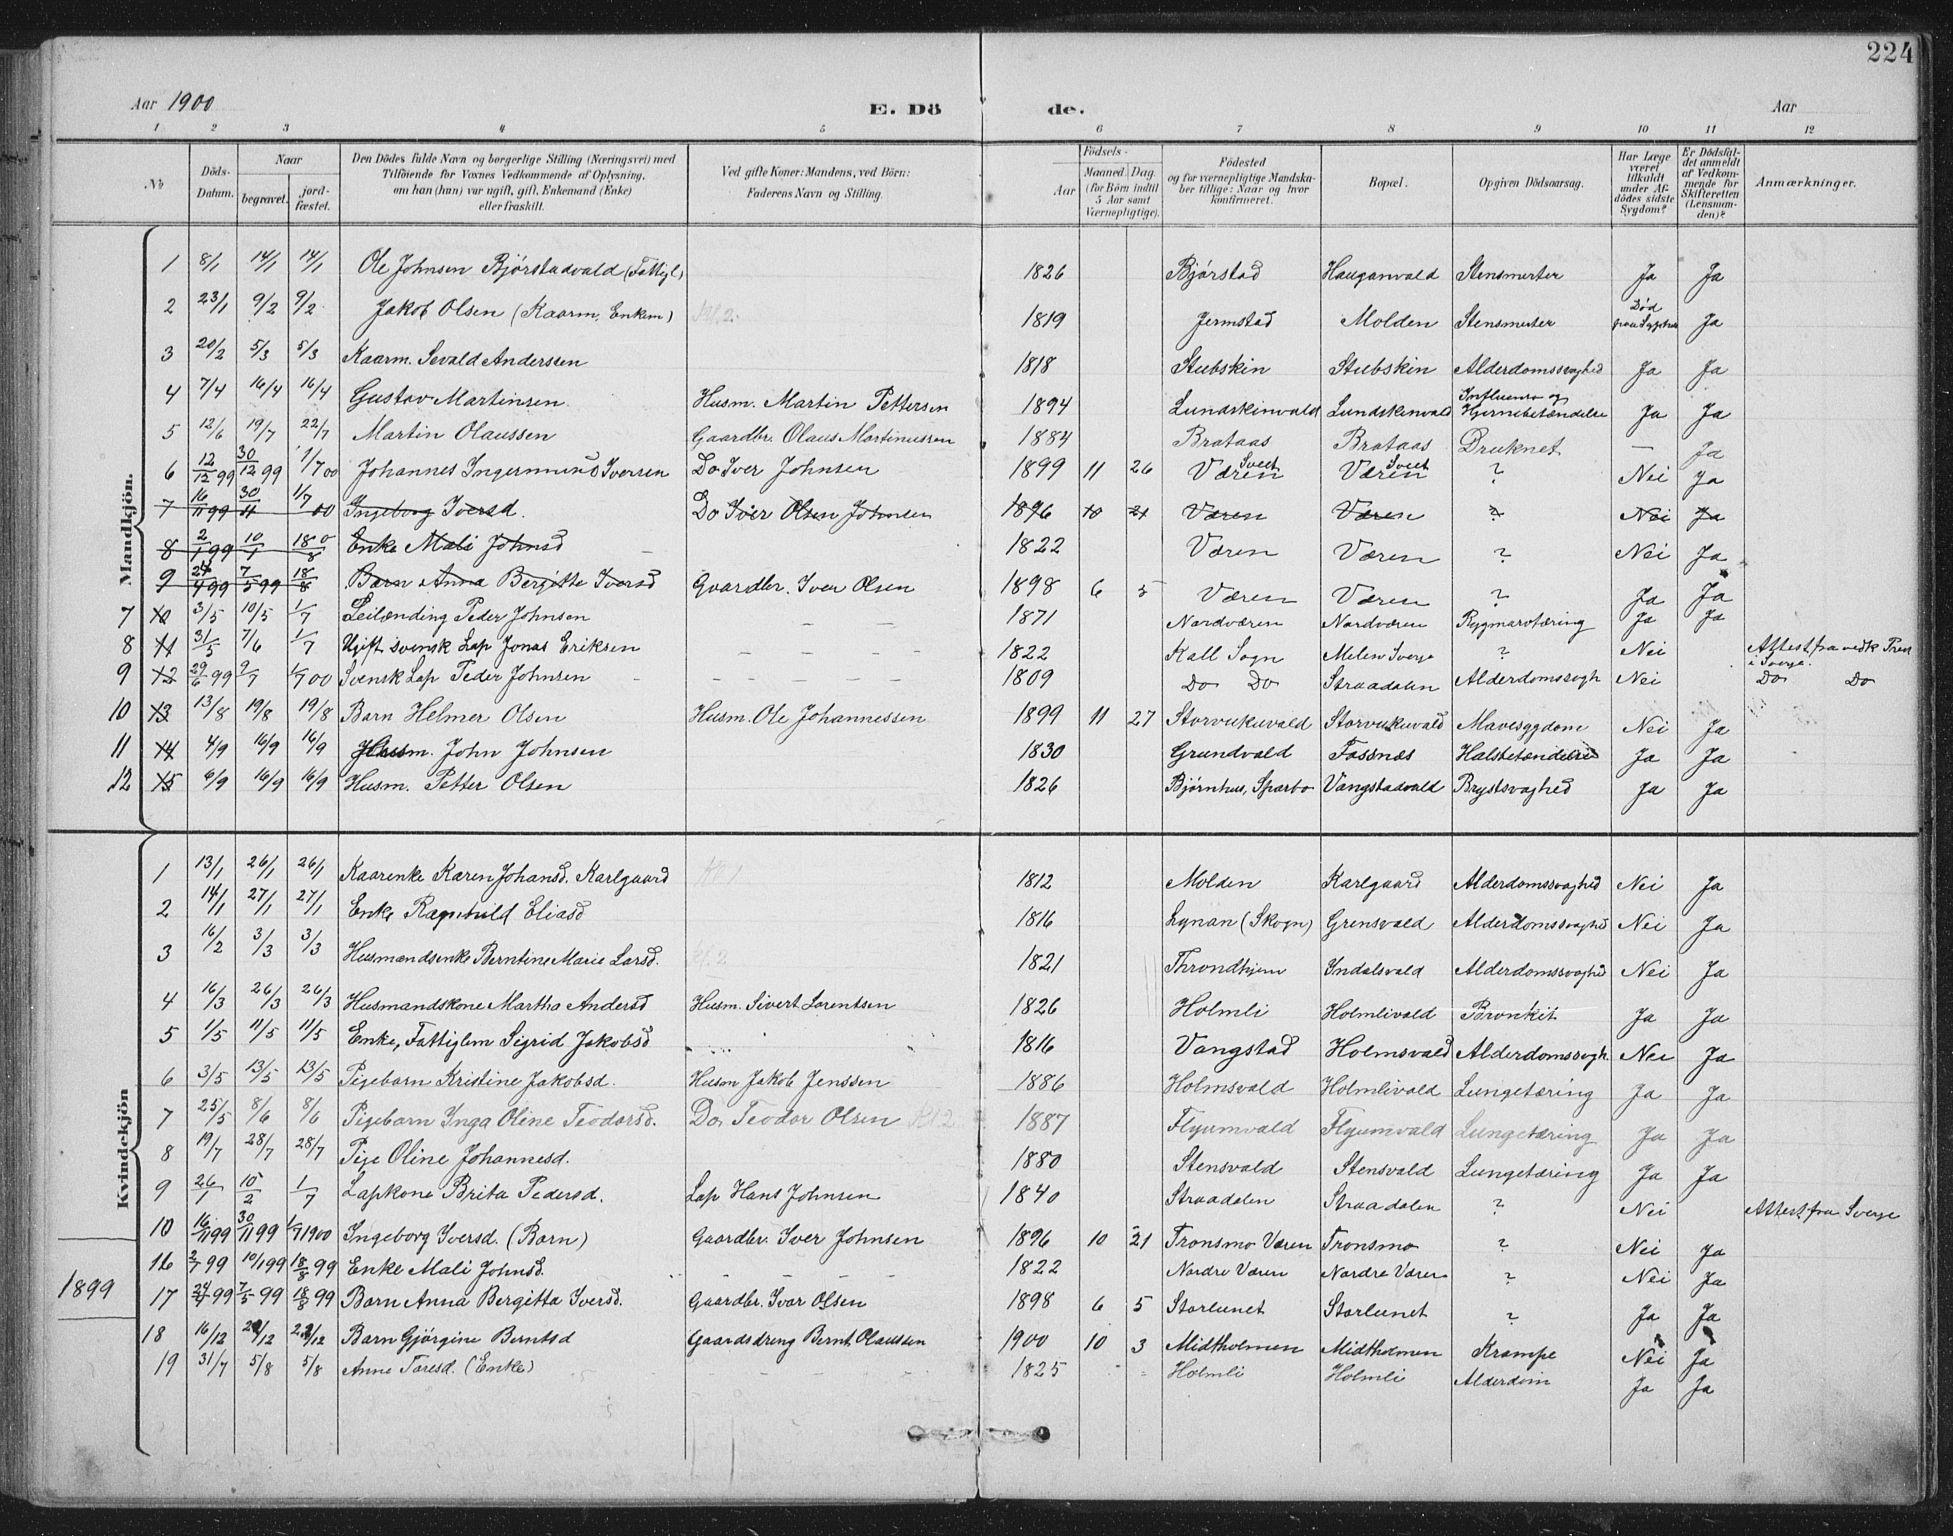 224
Aar 1900 E. Dö de. Aar
1 2 3 4 5 6 7 8 9 10 11 12
No
Döds-Datum.
Naar
begravet.
jord-fæstet.
Den Dödes fulde Navn og borgerlige Stilling (Næringsvei) med
Tilföiende for Voxnes Vedkommende af Oplysning,
om han (hun) var ugift, gift, Enkemand (Enke)
eller fraskilt.
Ved gifte Koner: Mandens, ved Börn:
Faderens Navn og Stilling.
Födsels-
Aar
Maaned. Dag.
(for Börn indtil
5 Aar samt
Værnepligtige).
Födested
og for værnepligtige Mandska-
ber tillige: Naar og hvor
konfirmeret.
Bopæl.
Opgiven Dödsaarsag.
Har Læge
været
tilkaldt
under Af-
dödes sidste
Sygdom?
Er Dödsfal-
det anmeldt
af Vedkom-
mende for
Skifteretten
(Lensman-
den)?
Anmærkninger.
Mandkjön.
1 8/1 14/1 14/1 Ole Johnsen Bjørstadvald (Fattigl) 1826 Bjørstad Hauganvald Stensmerter Ja Ja
2 23/1 9/2 9/2 Jakob Olsen (Kaarm. Enkem) 1819 Jermstad Molden Stensmerter Død paa Sygehus Ja
3 20/2 5/3 5/3 Kaarm. Sevald Anderssen 1818 Stubskin Stubskin Alderdomssvaghed Ja Ja
4 7/4 16/4 16/4 Gustav Martinsen Husm. Martin Pettersen 1894 Lundskinvald Lundskinvald Influensa og Hjernebetændelse Ja Ja
5 12/6 19/7 22/7 Martin Olaussen Gaardbr. Olaus Martinussen 1884 Brataas Brataas Druknet — Ja
6 12/12 99 30/12 99 1/7 00 Johannes Ingermund Iversen Do Iver Johnsen 1899 11 26 Væren Sveet Væren Sveet ? Nei Ja
7 16/11 99 30/11 1/7 00 Ingeborg Iversd. Do Iver Olsen Johnsen 1896 10 21 Væren Væren ? Nei Ja
8 2/1 99 10/1 18/8 Enke Mali Johnsd 1822 Væren Væren ? Nei Ja
9 24/4 99 7/5 99 18/8 Barn Anna Bergitte Iversd Gaardbr. Iver Olsen 1898 6 5 Væren Væren ? Ja Ja
7 10 3/5 10/5 1/7 Leilænding Peder Johnsen — — — 1871 Nordværen Nordværen Rygmarvtæring Ja Ja
8 11 31/5 7/6 1/7 Ugift svensk Lap Jonas Eriksen — — — — 1822 Kall Sogn Melen Sverge ? Nei Attest fra vedk Prest i Sverge.
9 12 29/6 99 9/7 1/7 00 Svensk Lap Peder Johnsen — — — — — 1809 Do Do Straadalen Alderdomssvagh Nei Do Do
10 13 13/8 19/8 19/8 Barn Helmer Olsen Husm. Ole Johannessen 1899 11 27 Storvukuvald Storvukuvald Mavesygdom Nei Ja
11 14 4/9 16/9 16/9 Husm. John Johnsen 1830 Grundvald Fossnæs Halsbetændelse Ja Ja
12 15 6/9 16/9 16/9 Husm. Petter Olsen 1826 Bjørnhus, Sparbo Vangstadvald Brystsvaghed Ja Ja
Kvindekjön
1 13/1 26/1 26/1 Kaarenke Karen Johansd. Karlgaard 1812 Molden Karlgaard Alderdomssvaghed Nei Ja
2 14/1 27/1 27/1 Enke Ragnhild Eliasd 1816 Lynan (Skogn) Grensvald Alderdomssvaghed Nei Ja
3 16/2 3/3 3/3 Husmandsenke Berntine Marie Larsd. 1821 Throndhjem Indalsvald Alderdomssvaghed Nei Ja
4 16/3 26/3 26/3 Husmandskone Martha Andersd Husm. Sivert Lorentsen 1826 Holmli Holmlivald Bronkit Ja Ja
5 1/5 11/5 11/5 Enke, Fattiglem Sigrid Jakobsd 1816 Vangstad Holmsvald Alderdomssvagh Nei Ja
6 3/5 13/5 13/5 Pigebarn Kristine Jakobsd. Husm Jakob Jenssen 1886 Holmsvald Holmlivald Lungetæring Ja Ja
7 25/5 8/6 8/6 Pigebarn Inga Oline Teodorsd. Do Teodor Olsen 1887 Flyumvald Flyumvald Lungetæring Ja Ja
8 19/7 28/7 28/7 Pige Oline Johannesd. 1880 Stensvald Stensvald Lungetæring Ja Ja
9 26/1 10/2 1/7 Lapkone Brita Pedersd. Lap Hans Johnsen 1840 Straadalen Straadalen ? Nei Attest fra Sverge
10 16/11 99 30/11 99 1/7 1900 Ingeborg Iversd. (Barn) Gaardbr. Iver Johnsen 1896 10 21 Tronsmo Væren Tronsmo ? Nei Ja
1899
16 2/1 99 10/1 99 18/8 99 Enke Mali Johnsd. — — — — 1822 Nordre Væren Nordre Væren ? Nei Ja
17 24/4 99 7/5 99 18/8 99 Barn Anna Bergitta Iversd. Gaardbr. Ivar Olsen 1898 6 5 Storlunet Storlunet ? Ja Ja
18 16/12 22/12 22/12 Barn Gjørgine Berntsd Gaardsdreng Bernt Olaussen 1900 10 3 Midtholmen Midtholmen Krampe Nei Ja
19 31/7 5/8 5/8 Anne Toresd. (Enke) 1825 Holmli Holmli Alderdom Ja Ja